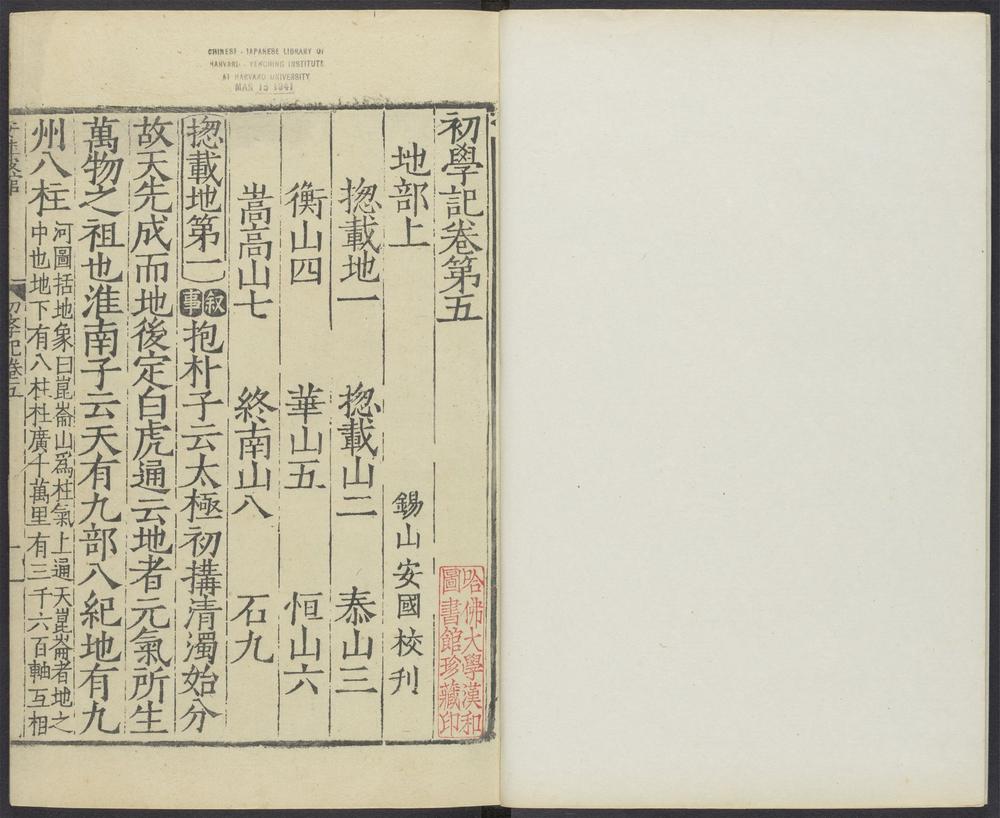 CHINESE - JAPANESE LIBRARY OF
HARVARD - YENCHING INSTITUTE
AT HARVARD UNIVERSITY
MAR 15 1941
初學記卷第五
哈佛大學漢和
圖書館珍藏印
地部上 錫山安國校刋
揔載地一 揔載山二 泰山三
衡山四 華山五 恒山六
嵩高山七 終南山八 石九
揔載地第一 叙事 抱朴子云太極初搆清濁始分
故天先成而地後定白虎通云地者元氣所生
萬物之祖也淮南子云天有九部八紀地有九
州八柱 河圖括地象曰崑崙山爲柱氣上通天崑崙者地之
中也地下有八柱柱廣十萬里有三千六百軸互相
初學記卷五
一